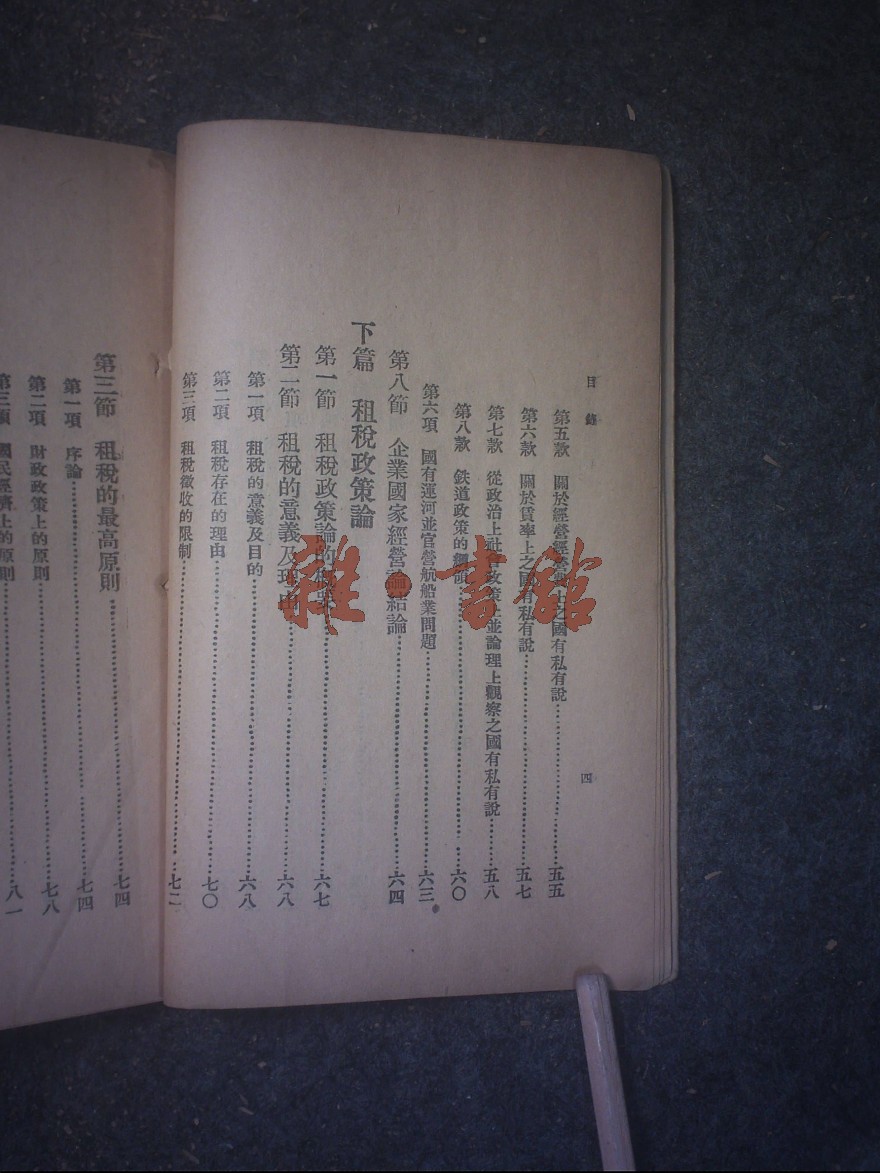 目錄
第五款 關於經營經濟上之國有私有說……五五
第六款 關於賃率上之國有私有說……五七
第七款 從政治上社會政策上並論理上觀察之國有私有說……五八
第八款 鉄道政策的……六〇
第六項 國有運河並官營航船業問題……六三
第八節 企業國家經營論結論……六四
下篇 租稅政策論
第一節 租稅政策論的……六七
第二節 租稅的意義及理由……六八
第一項 租稅的意義及目的……六八
第二項 租稅存在的理由……七〇
第三項 租稅徵收的限制……七二
四
第三節 租稅的最高原則……七四
第一項 序論……七四
第二項 財政政策上的原則……七八
第三項 國民經濟上的原則……八一
雜·書館